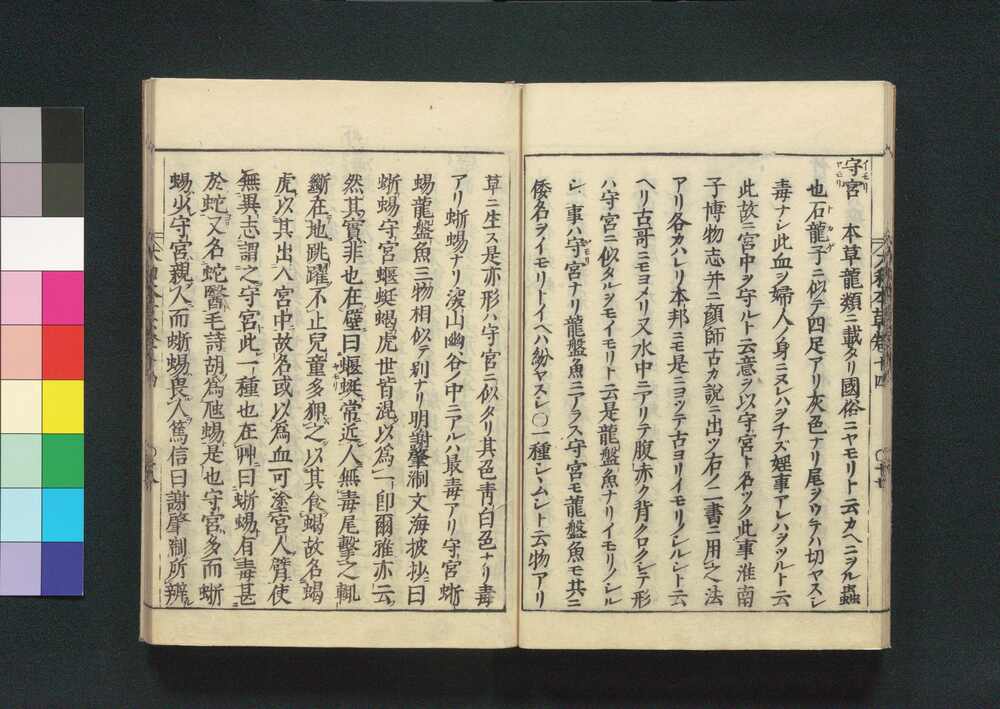 守宮 本草龍類ニ載タリ國俗ニヤモリト云カヘニヲル蟲
也石龍子ニ似テ四足アリ灰色ナリ尾ヲウテハ切ヤスシ
毒ナシ此血ヲ婦人ノ身ニヌレハヲチズ婬事アレハヲツルト云
此故ニ宮中ヲ守ルト云意ヲ以守宮ト名ツク此事淮南
子博物志并ニ顔師古カ說ニ出ツ右ノ二書ニ用之法
アリ各カハレリ本邦ニモ是ニヨツテ古ヨリイモリノシルシト云
ヘリ古哥ニモヨメリ又水中ニアリテ腹赤ク背クロクシテ形
ハ守宮ニ似タルヲモイモリト云是龍盤魚ナリイモリノシル
シノ事ハ守宮ナリ龍盤魚ニアラス守宮モ龍盤魚モ其ニ
倭名ヲイモリトイヘハ紛ヤスシ〇一種シムシト云物アリ
草ニ生ス是亦形ハ守宮ニ似タリ其色青白色ナリ毒
アリ蜥蜴ナリ深山幽谷ノ中ニアルハ最毒アリ守宮蜥
蜴龍盤魚三物相似テ別ナリ明謝肇淛文海披抄曰
蜥蜴守宮蝘蜓蝎虎世皆混以為一卽爾雅亦云
然其實非也在壁曰蝘蜓常近人無毒尾擊之輒
斷在地跳躍不止兒童多狎之以其食蝎故名蝎
虎以其出入宮中故名或以為血可塗宮人臂使
無異志謂之守宮此一種也在艸曰蜥蜴有毒甚
於蛇又名蛇醫毛詩胡為虺蜴是也守宮多而蜥
蜴少守宮親人而蜥蜴畏人篤信曰謝肇淛所辨